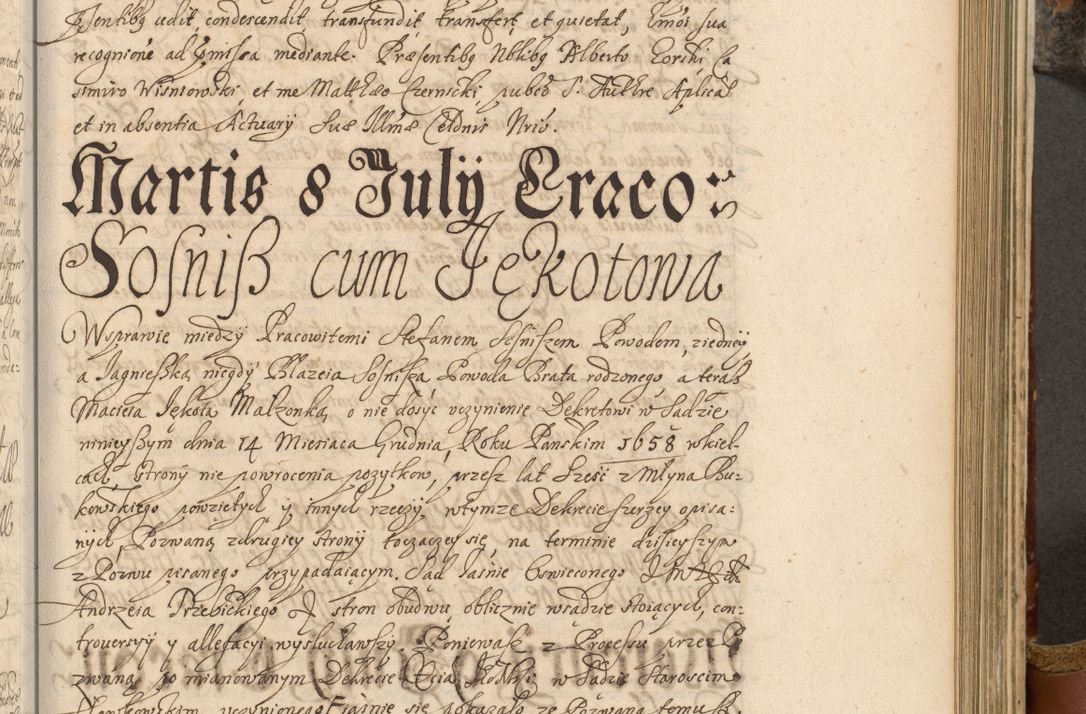 psentibq cedit, condescendit, transfundit, transfert, et quietat, sua
recognione ad pmissa mediante. Præsentibq Nblibq Alberto Gorski, Ca
simiro Wisniowski, et me Matthæo Czernicki publco S. Authre Aplica
et in absentia Actuarÿ Suæ Illmæ Celdnis
Martis 8 Julÿ Craco:
Sosniß cum Jękotowa
Wsprawie między Pracowitemi Stefanem Sosniszem Powodem, ziedneÿ
a Jagnieszką niegdÿ Błazeia Sosnisza Powoda Brata rodzonego a teraß
Macieia Jękota Małzonką, o nie dosyć vczynienie Dekretowi w Sadzie
ninieyßym dnia 14 Miesiąca Grudnia, Roku Panskim 1658 wkiel-
cach, strony nie powrocenia pozytkow, przesz lat Sześć z Młyna Bu-
kowskiego powziętych y innych rzeczy, wtymze Dekrecie szerzey opisa:
nych, Pozwaną zdrugiey strony toczączey się, na terminie dzisieyszym
z Pozwu pisanego przypadaiącym. Sąd Jasnie Oswieconego
Andrzeia Trzebickiego stron obudwu, oblicznie wsądzie stoiących, con-
troversyÿ y allegacyi wysłuchawszy. Poniewasz z Processu przez Po
zwaną po mianowanym Dekrecie w Sądzie Staroscim
vczynionego iasnie się pokazało ze Pozwana temusz